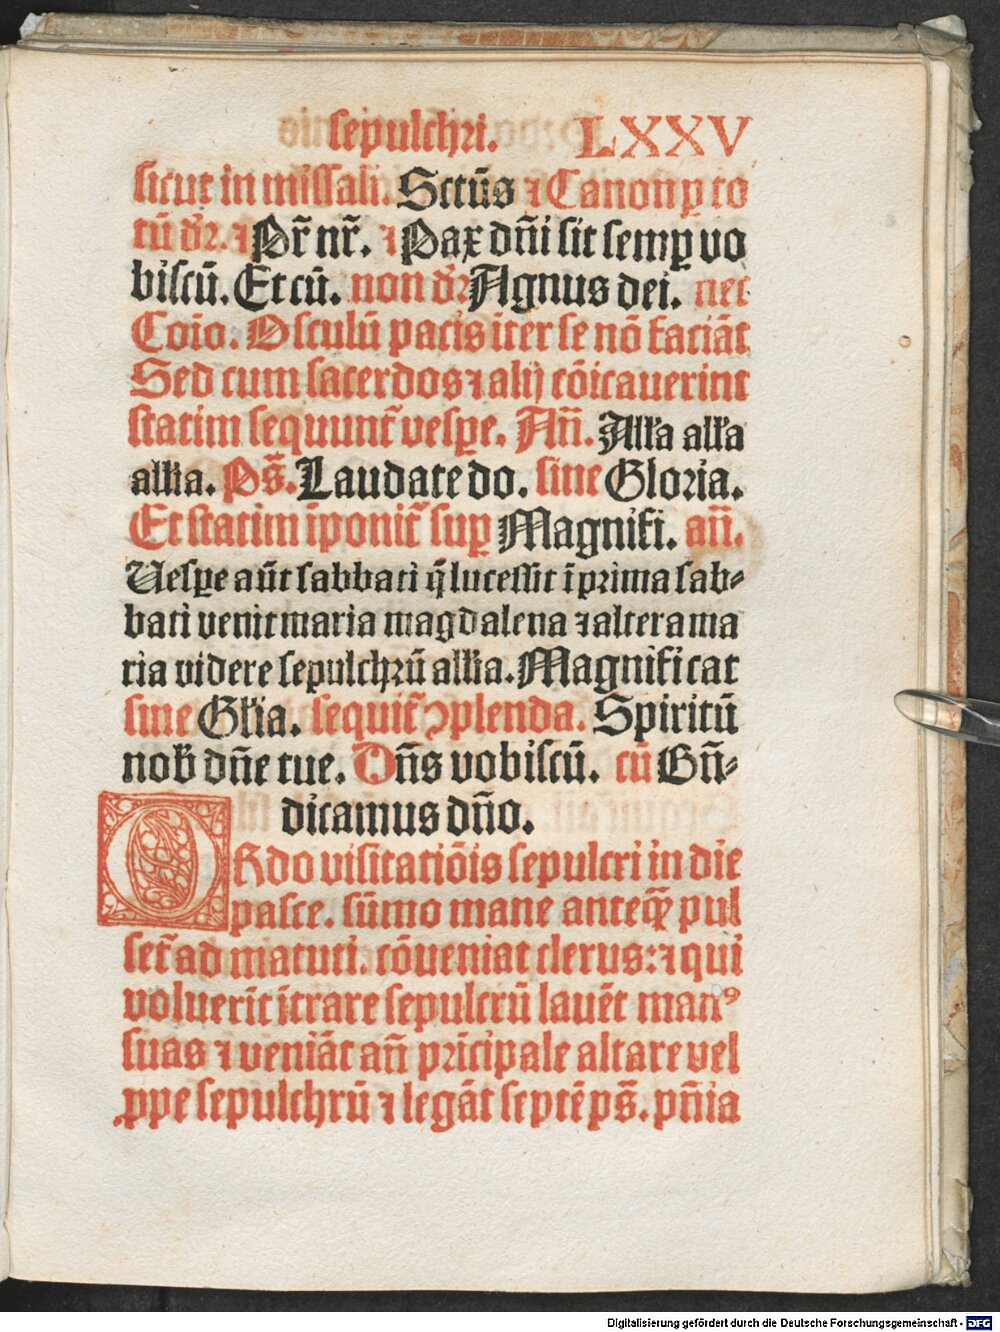 sepulchri. LXXV
sicut in missali. Sctūs ⁊ Canon ꝑ to
tū dr̄. ⁊ Pr̄ nr̄. ⁊ Pax dn̄i sit semꝑ vo
biscū. Et cū. non dr̄ Agnus dei. nec
Coīo. Osculū pacis īter se nō faciāt
Sed cum sacerdos ⁊ alij cōicauerint
statim sequunt̄ vesꝑe. An̄. Alľa alľa
allia. Ps̄. Laudate do. sine Gloria.
Et statim īponit̄ suꝑ Magnifi. an̄.
Vesꝑe aūt sabbati q̄ lucessit ī prima sab-
bati venit maria magdalena ⁊ altera ma
ria videre sepulchrū allia. Magnificat
sine Glľia. sequit̄ ꝯplenda. Spiritū
nob̄ dn̄e tue. Dn̄s vobiscū. cū Bn̄-
dicamus dn̄o.
ORdo visitatiōis sepulcri in die
pasce. sūmo mane anteqꝫ pul
set̄ ad matuti. cōueniat clerus: ⁊ qui
voluerit ītrare sepulcrū lauēt manꝰ
suas ⁊ veniāt an̄ prīcipale altare vel
ꝓpe sepulchrū ⁊ legāt septē ps̄. pn̄ia
Digitalisierung gefördert durch die Deutsche Forschungsgemeinschaft - DFG